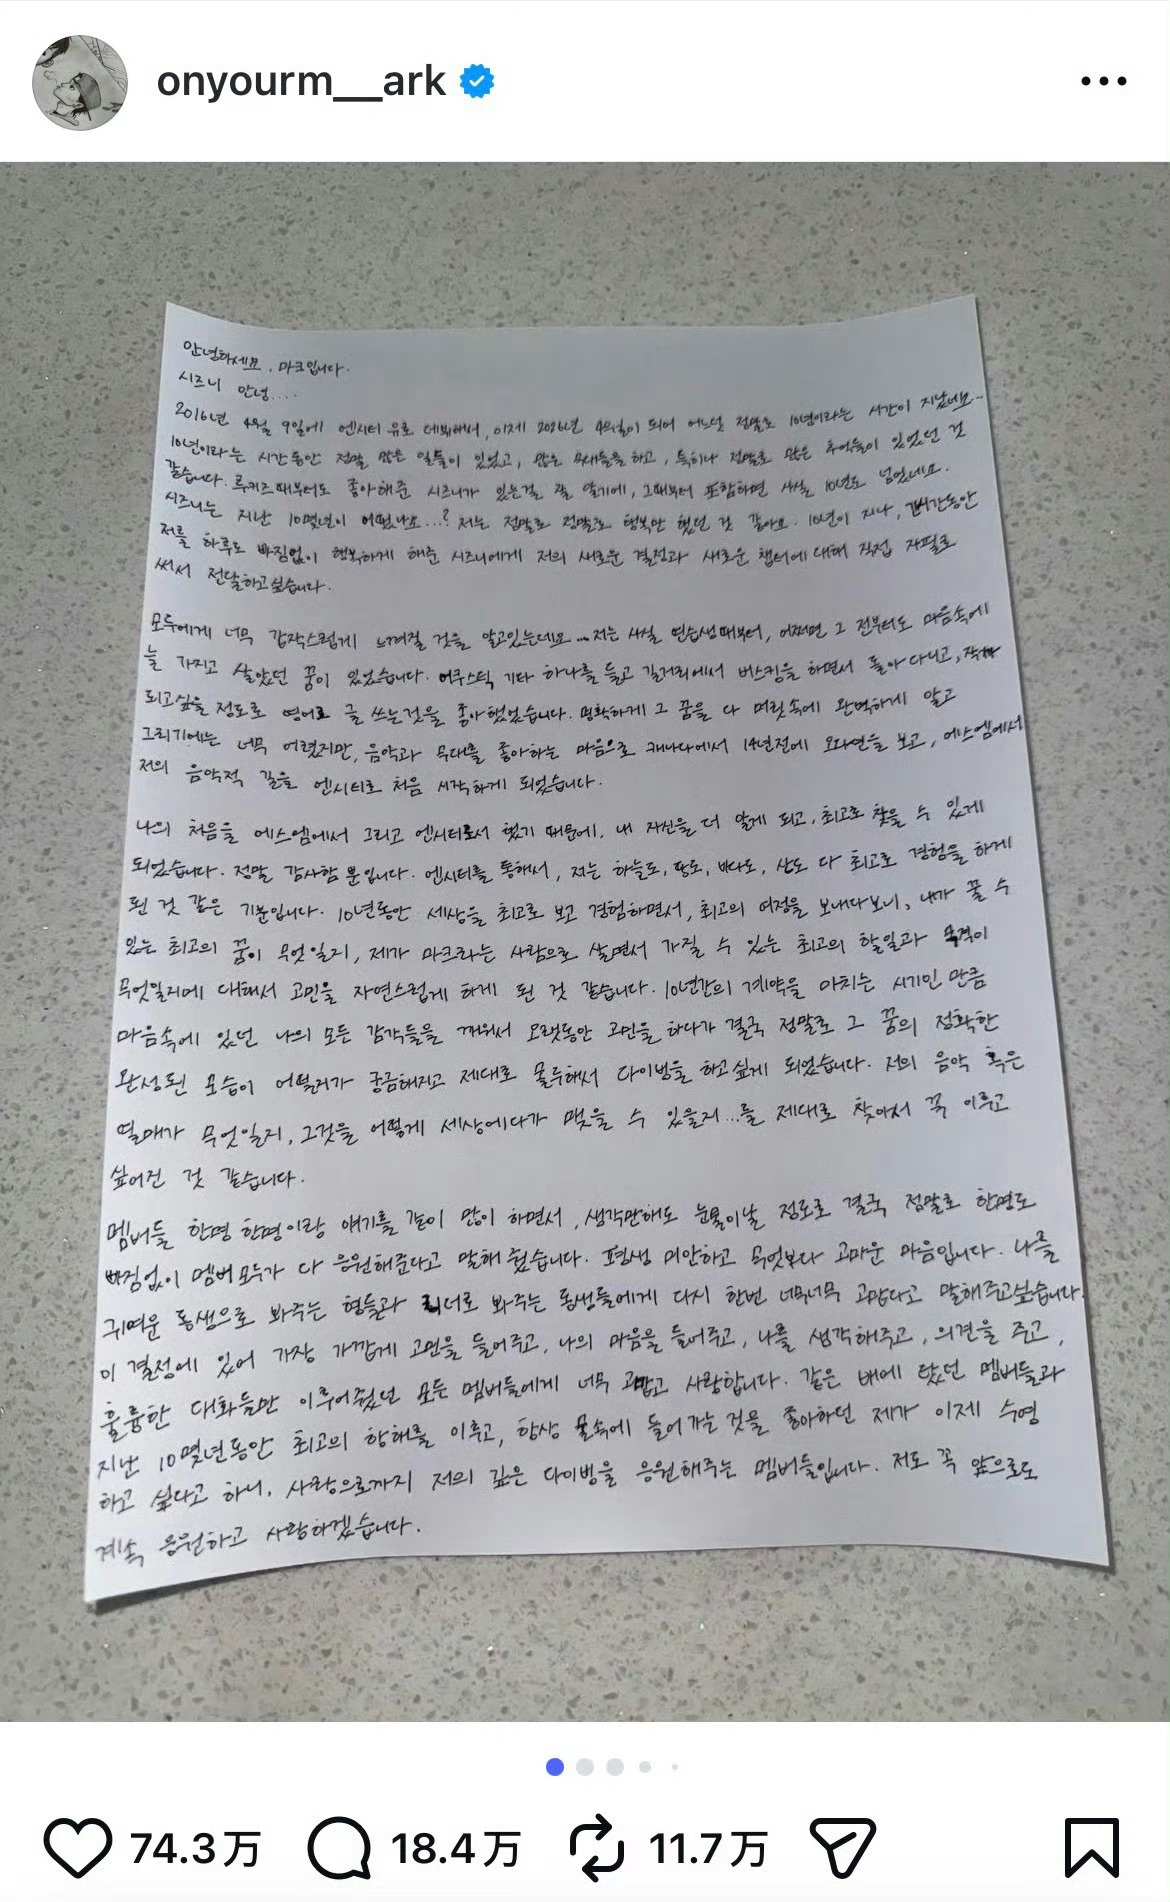 onyourm__ark
안녕하세요, 마크입니다.
시즈니 안녕....
2016년 4월 9일에 엔시티 유로 데뷔해서, 이제 2026년 4월이 되어 어느덧 정말로 10년이라는 시간이 지났네요..
10년이라는 시간동안 정말 많은 일들이 있었고, 많은 하고, 특히나 정말로 많은 추억들이 있었던 것
같습니다. 루키즈때부터도 좋아해준 시즈니가 있는걸 잘 알기에, 그때부터 포함하면 사실 10년도 넘었네요.
시즈니는 지난 10몇년이 어땠나요...? 저는 정말로 정말로 행복만 했던 것 같아요. 10년이 지나, 동안
저를 하루도 빠짐없이 행복하게 해준 시즈니에게 저의 새로운 결정과 새로운 챕터에 대해 직접 자필로
써서 전달하고싶습니다.
모두에게 너무 갑작스럽게 느껴질 것을 알고있는데요... 저는 사실 연습생때부터, 어쩌면 그 전부터도 마음속에
늘 가지고 살았던 꿈이 있었습니다. 어쿠스틱 기타 하나를 들고 길거리에서 버스킹을 하면서 돌아다니고, 작가
되고싶을 정도로 영어로 글 쓰는것을 좋아했었습니다. 명확하게 그 꿈을 다 머릿속에 완벽하게 알고
그리기에는 너무 어렸지만, 음악과 무대를 좋아하는 마음으로 캐나다에서 14년전에 오디션을 보고, 에스엠에서
저의 음악적 길을 엔시티로 처음 시작하게 되었습니다.
나의 처음을 에스엠에서 그리고 엔시티로서 했기 때문에, 내 자신을 더 알게 되고, 최고로 찾을 수 있게
되었습니다. 정말 감사할 뿐입니다. 엔시티를 통해서, 저는 하늘도, 땅도, 바다도, 산도 다 최고로 경험을 하게
된 것 같은 기분입니다. 10년동안 세상을 최고로 보고 경험하면서, 최고의 여정을 보내다보니, 내가 꿀 수
있는 최고의 꿈이 무엇일지, 제가 마크라는 사람으로 살면서 가질 수 있는 최고의 할일과 목적이
무엇일지에 대해서 고민을 자연스럽게 하게 된 것 같습니다. 10년간의 계약을 마치는 시기인 만큼
마음속에 있던 나의 모든 감각들을 깨워서 오랫동안 고민을 하다가 결국 정말로 그 꿈의 정확한
완성된 모습이 어떨런가 궁금해지고 제대로 몰두해서 다이빙을 하고싶게 되었습니다. 저의 음악 혹은
열매가 무엇일지, 그것을 어떻게 세상에다가 맺을 수 있을지...를 제대로 찾아서 꼭 이루고
싶어진 것 같습니다.
멤버들 한명 한명이랑 얘기를 같이 많이 하면서, 생각만해도 눈물이날 정도로 결국 정말로 한명도
빠짐없이 멤버 모두가 다 응원해준다고 말해줬습니다. 평생 미안하고 무엇보다 고마운 마음입니다. 나를
귀여운 동생으로 봐주는 형들과 리더로 봐주는 동생들에게 다시 한번 너무너무 고맙다고 말해주고싶습니다.
이 결정에 있어 가장 가깝게 고민을 들어주고, 나의 마음을 들어주고, 나를 생각해주고, 의견을 주고,
훌륭한 대화들만 이루어줬던 모든 멤버들에게 너무 고맙고 사랑합니다. 같은 배에 탔던 멤버들과
지난 10몇년동안 최고의 항해를 이루고, 항상 물속에 들어가는것을 좋아하던 제가 이제 수영
하고 싶다고 하니, 사랑으로까지 저의 깊은 다이빙을 응원해주는 멤버들입니다. 저도 꼭 앞으로도
계속 응원하고 사랑하겠습니다.
74.3万 18.4万 11.7万